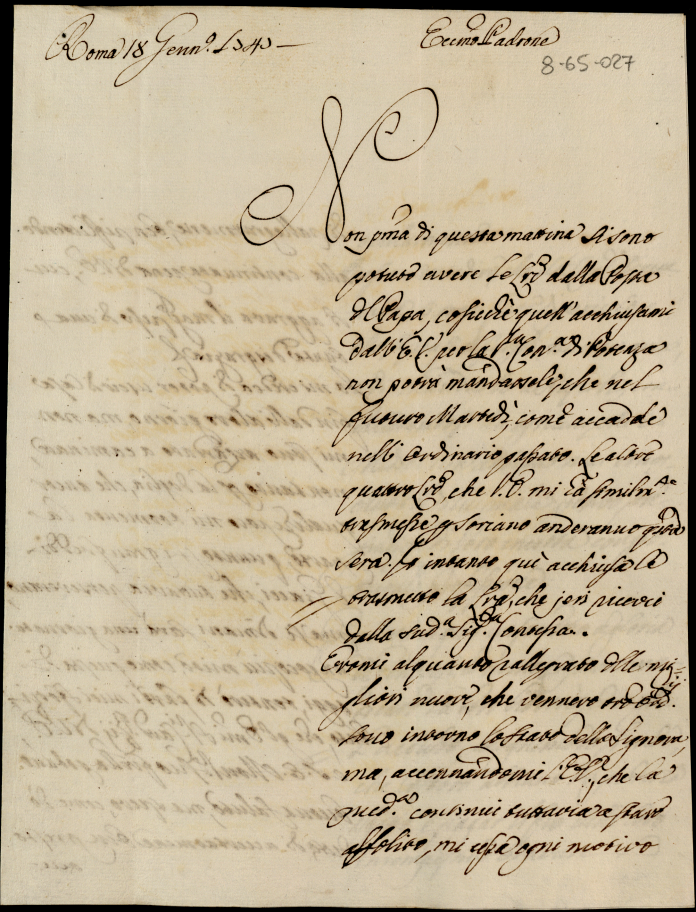 Roma 18 Genn.º 1743 —
Eccmo Padrone
8-65-027
Non pma di questa mattina si sono
potute avere le Lre dalla Posta
del Papa, cosicchè quell' acchiusami
dall' E. V. per la S.ra Con.a di Potenza
non potrà mandarsele, che nel
futuro Martedì, come accadde
nell' Ordinario passato. Le altre
quattro Lre, che V. E. mi ha similm.te
trasmesse p Soriano anderanno questa
sera. Io intanto quì acchiusa le
trasmetto la Lra, che jeri ricevei
dalla sud.a Sig.ra Contessa.
Eromi alquanto rallegrato delle mi=
gliori nuove, che vennero
intorno lo stato della Signora,
ma, accennandomi l' E. V., che la
med.a continui tuttavia a stare
, mi cessa ogni motivo